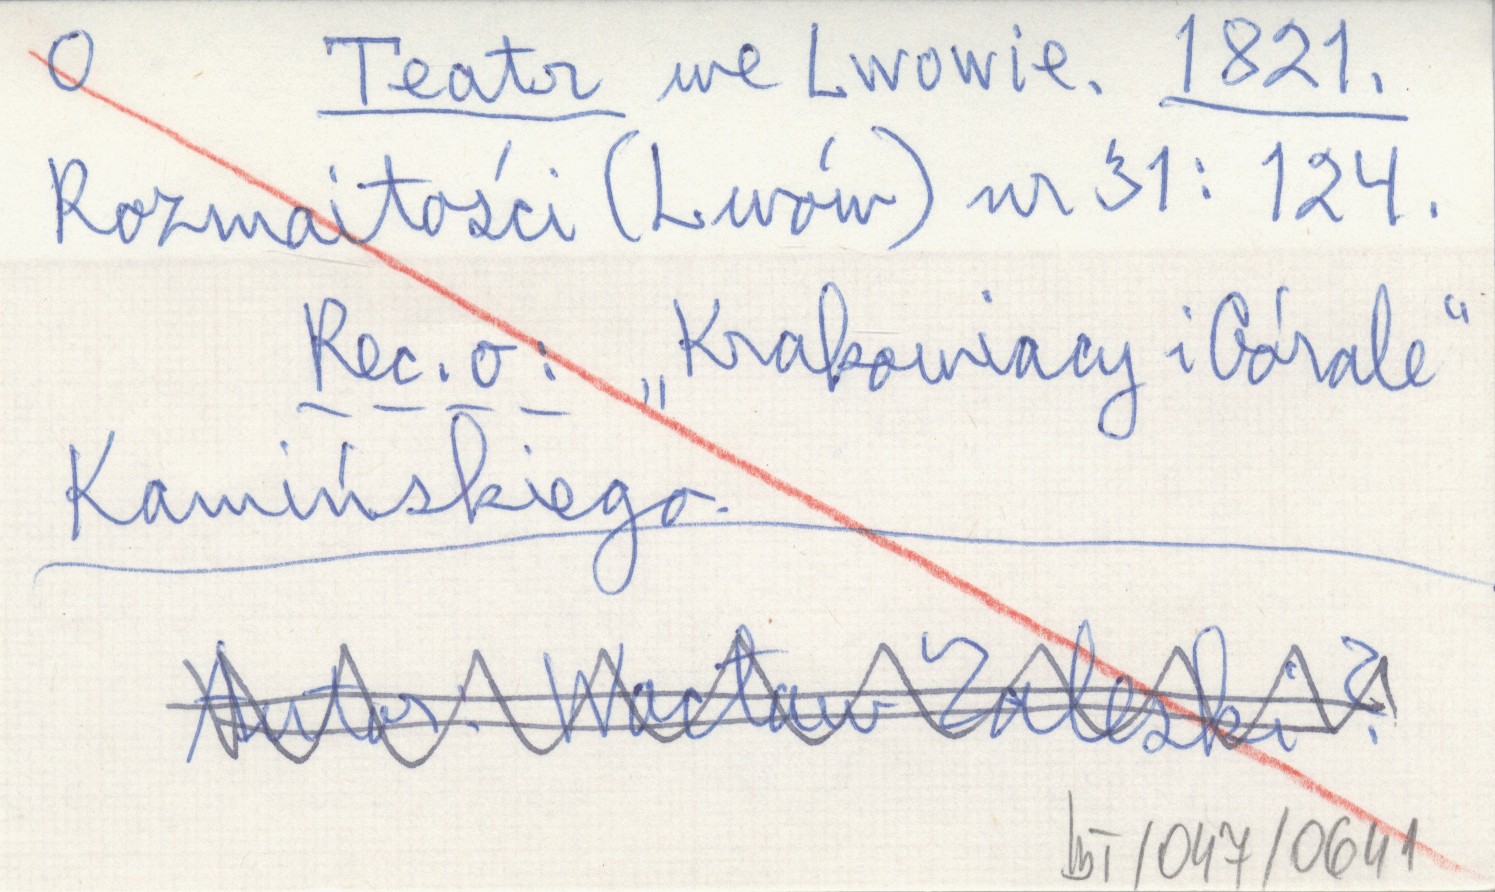 O Teatr we Lwowie. 1821.
Rozmaitości (Lwów) nr 31: 124.
Rec. o: „Krakowiacy i Górale"
Kamińskiego.
Autor: Wacław Zaleski?
bT/047/0641